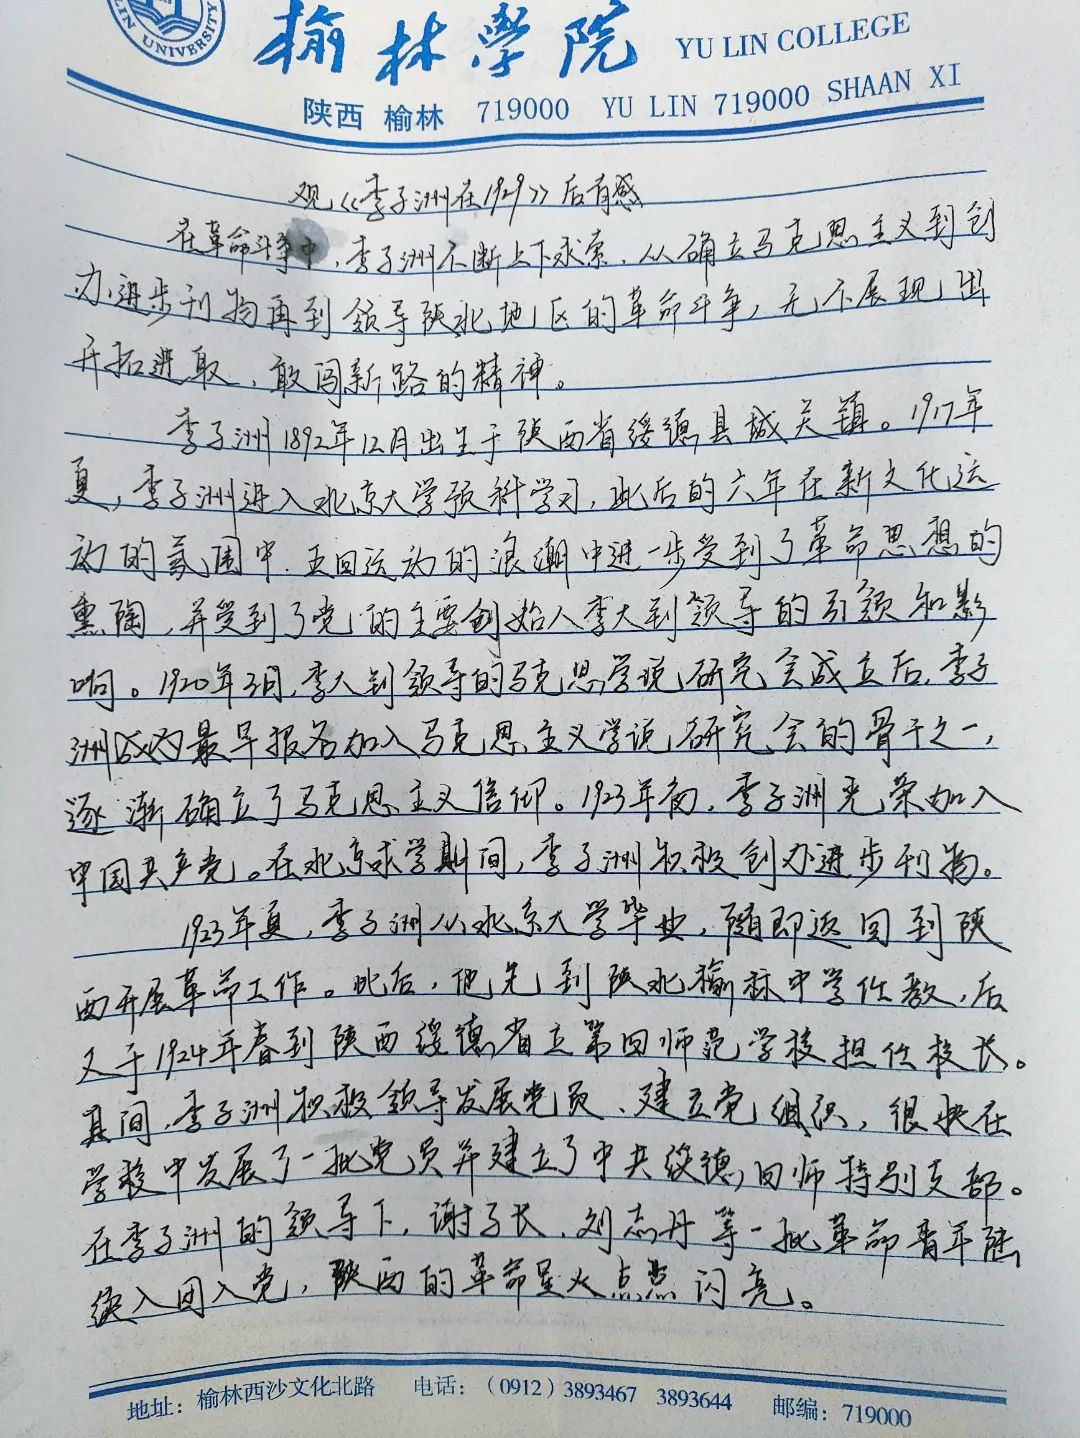 LIN UNIVERSITY
榆林学院 YU LIN COLLEGE
陕西 榆林 719000 YU LIN 719000 SHAAN XI
观《李子洲在1929》后有感
在革命斗争中,李子洲不断上下求索,从确立马克思主义到创
办进步刊物再到领导陕北地区的革命斗争,无不展现出
开拓进取、敢闯新路的精神。
李子洲1892年12月出生于陕西省绥德县城关镇。1917年
夏,李子洲进入北京大学预科学习,此后的六年在新文化运
动的氛围中,五四运动的浪潮中进一步受到了革命思想的
熏陶,并受到了党的主要创始人李大钊领导的引领和影
响。1920年3月,李大钊领导的马克思学说研究会成立后,李子
洲成为最早报名加入马克思主义学说研究会的骨干之一,
逐渐确立了马克思主义信仰。1923年初,李子洲光荣加入
中国共产党。在北京求学期间,李子洲积极创办进步刊物。
1923年夏,李子洲从北京大学毕业,随即返回到陕
西开展革命工作。此后,他先到陕北榆林中学任教,后
又于1924年春到陕西绥德省立第四师范学校担任校长。
其间,李子洲积极领导发展党员、建立党组织,很快在
学校中发展了一批党员并建立了中共绥德四师特别支部。
在李子洲的领导下,谢子长、刘志丹等一批革命青年陆
续入团入党,陕西的革命星火点点闪亮。
地址:榆林西沙文化北路 电话:(0912)3893467 3893644 邮编:719000